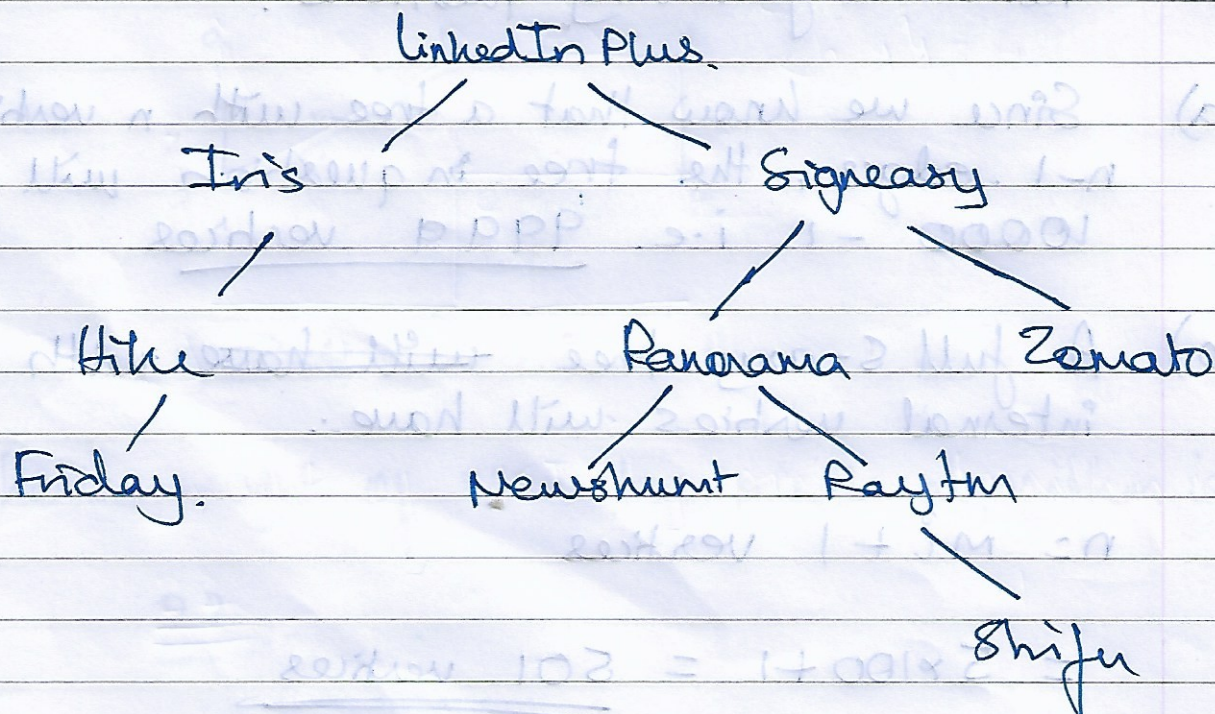 LinkedIn Plus.
Iris Signeasy
Hike Panorama Zomato
Friday. Newshunt Paytm
Shifu